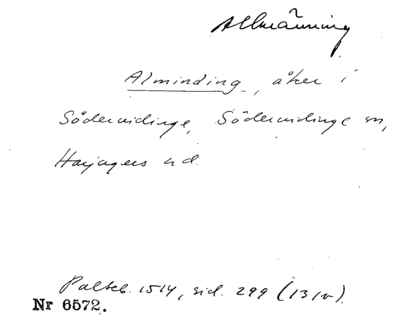 Allmänning
Alminding, åker i
Södervidinge, Södervidinge sn,
Harjagers hd.
Palteb. 1514, sid. 299 (13/v).
Nr 6572.